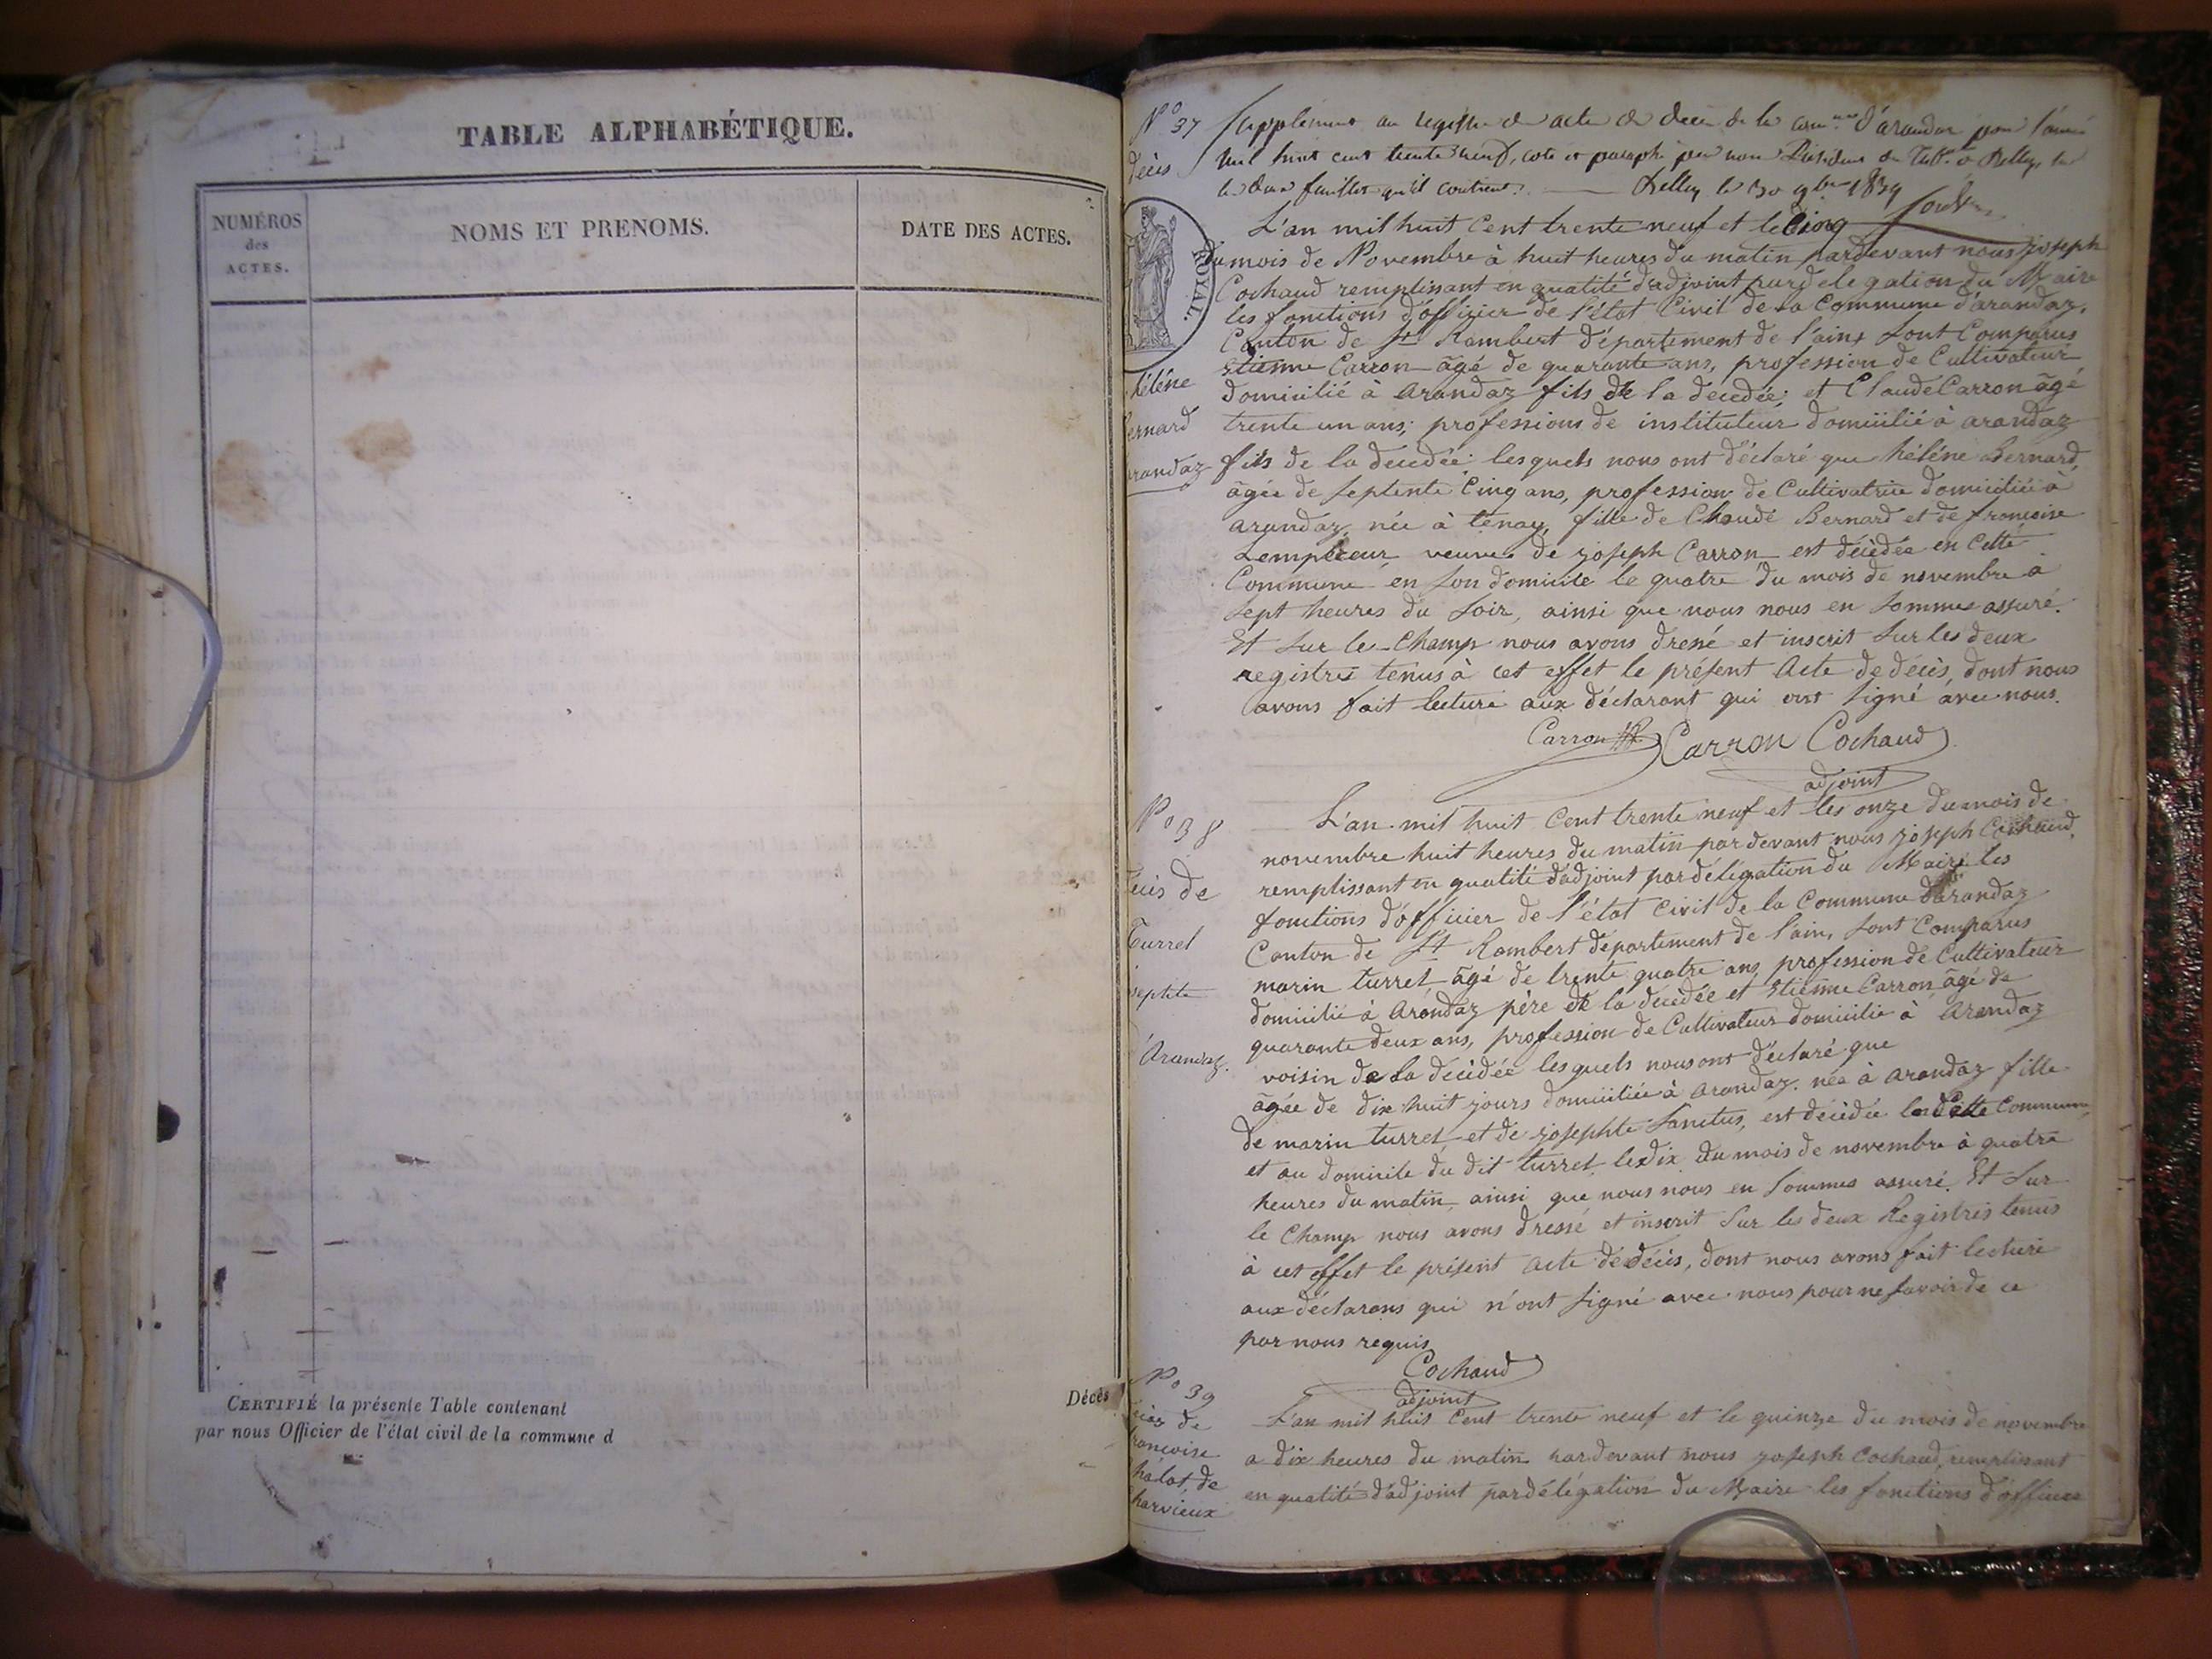 TABLE ALPHABÉTIQUE.
NUMÉROS
des
ACTES.
NOMS ET PRENOMS.
DATE DES ACTES.
CERTIFIÉ la présente Table contenant
par nous Officier de l'état civil de la commune d
Décès
N° 37
décès
hélène
ernard
randaz
Supplément au registre de acte de décès de la comune d'arandas pour l'année
mil huit cent trente neuf, coté et paraphé par nous Président du Tribl de Belley, sur
les deux feuillets qu'il contient. Belley le 30 9bre 1839
ROYAL.
L'an mil huit Cent trente neuf et le Cinq
du mois de Novembre à huit heures du matin pardevant nous joseph
Cochaud remplissant en qualité d'adjoint par délégation du Maire
les fonctions d'officier de l'état Civil de la Commune d'arandaz,
Canton de St Rambert département de l'ain, sont Comparus
Etienne Carron âgé de quarante ans, profession de Cultivateur
domicilié à Arandaz fils de la décédée; et Claude Carron âgé
trente un ans; profession de instituteur domicilié à arandaz
fils de la décédée; lesquels nous ont déclaré que hélène Bernard,
âgée de septente Cinq ans, profession de Cultivatrice domiciliée à
Arandaz, née à tenay, fille de Claude Bernard et de françoise
Lempereur veuve de joseph Carron est décédée en Cette
Commune en son domicile le quatre du mois de novembre a
sept heures du soir, ainsi que nous nous en sommes assuré.
Et sur le-Champ nous avons dressé et inscrit sur les deux
registres tenus à cet effet le présent Acte de décès, dont nous
avons fait lecture aux déclarant qui ont signé avec nous.
Carron Carron Cochaud
adjoint
N° 38
écis de
Turrel
osephte
d'Arandaz.
L'an mil huit Cent trente neuf et les onze du mois de
novembre huit heures du matin pardevant nous joseph Cochaud,
remplissant en qualité d'adjoint par délégation du Maire les
fonctions d'officier de l'état civil de la Commune d'arandaz
Canton de St Rambert département de l'ain, sont Comparus
marin turrel âgé de trente quatre ans profession de Cultivateur
domicilié à Arandaz père de la décédée et Etienne Carron âgé de
quarante deux ans, profession de Cultivateur domicilié à Arandaz
voisin de la décédée lesquels nous ont déclaré que
âgée de dix huit jours domiciliée à Arandaz. née à arandaz fille
de marin turrel et de josephte Sanctus, est décédée Cette Commune,
et au domicile du dit turrel le dix du mois de novembre à quatre
heures du matin ainsi que nous nous en sommes assuré. Et sur
le Champ nous avons dressé et inscrit sur les deux Registres tenus
à cet effet le présent acte de décès, dont nous avons fait lecture
aux déclarans qui n'ont signé avec nous pour ne savoir de ce
par nous requis
Cochaud
adjoint
N° 39
écès de
rançoise
halat, de
harvieux
L'an mil huit Cent trente neuf et le quinze du mois de novembre
a dix heures du matin pardevant nous joseph Cochaud, remplissant
en qualité d'adjoint par délégation du Maire les fonctions d'officier